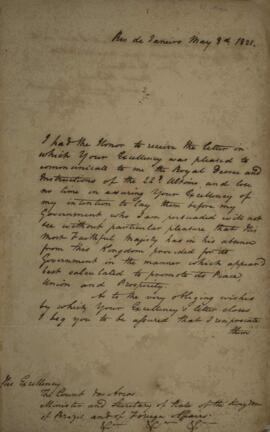 Rio de Janeiro May 3d 1821.
I had the Honor to receive the letter in
which Your Excellency was pleased to
communicate to me the Royal Decree and
Instructions of the 22d Ultimo and lose
no time in assuring Your Excellency of
my intention to lay them before my
Government, who I am persuaded will not
see without particular pleasure that His
Most Faithful Majesty has in his absence
from this Kingdom provided for its
Government in the manner which appeared
best calculated to promote its Peace
Union and Prosperity.
As to the very obliging wishes
by which Your Excellency's letter closes
I beg you to be assured that I reciprocate
them
His Excellency
The Count dos Arcos
Minister and Secretary of State of the Kingdom
of Brazil, and of Foreign Affairs
&c &c &c